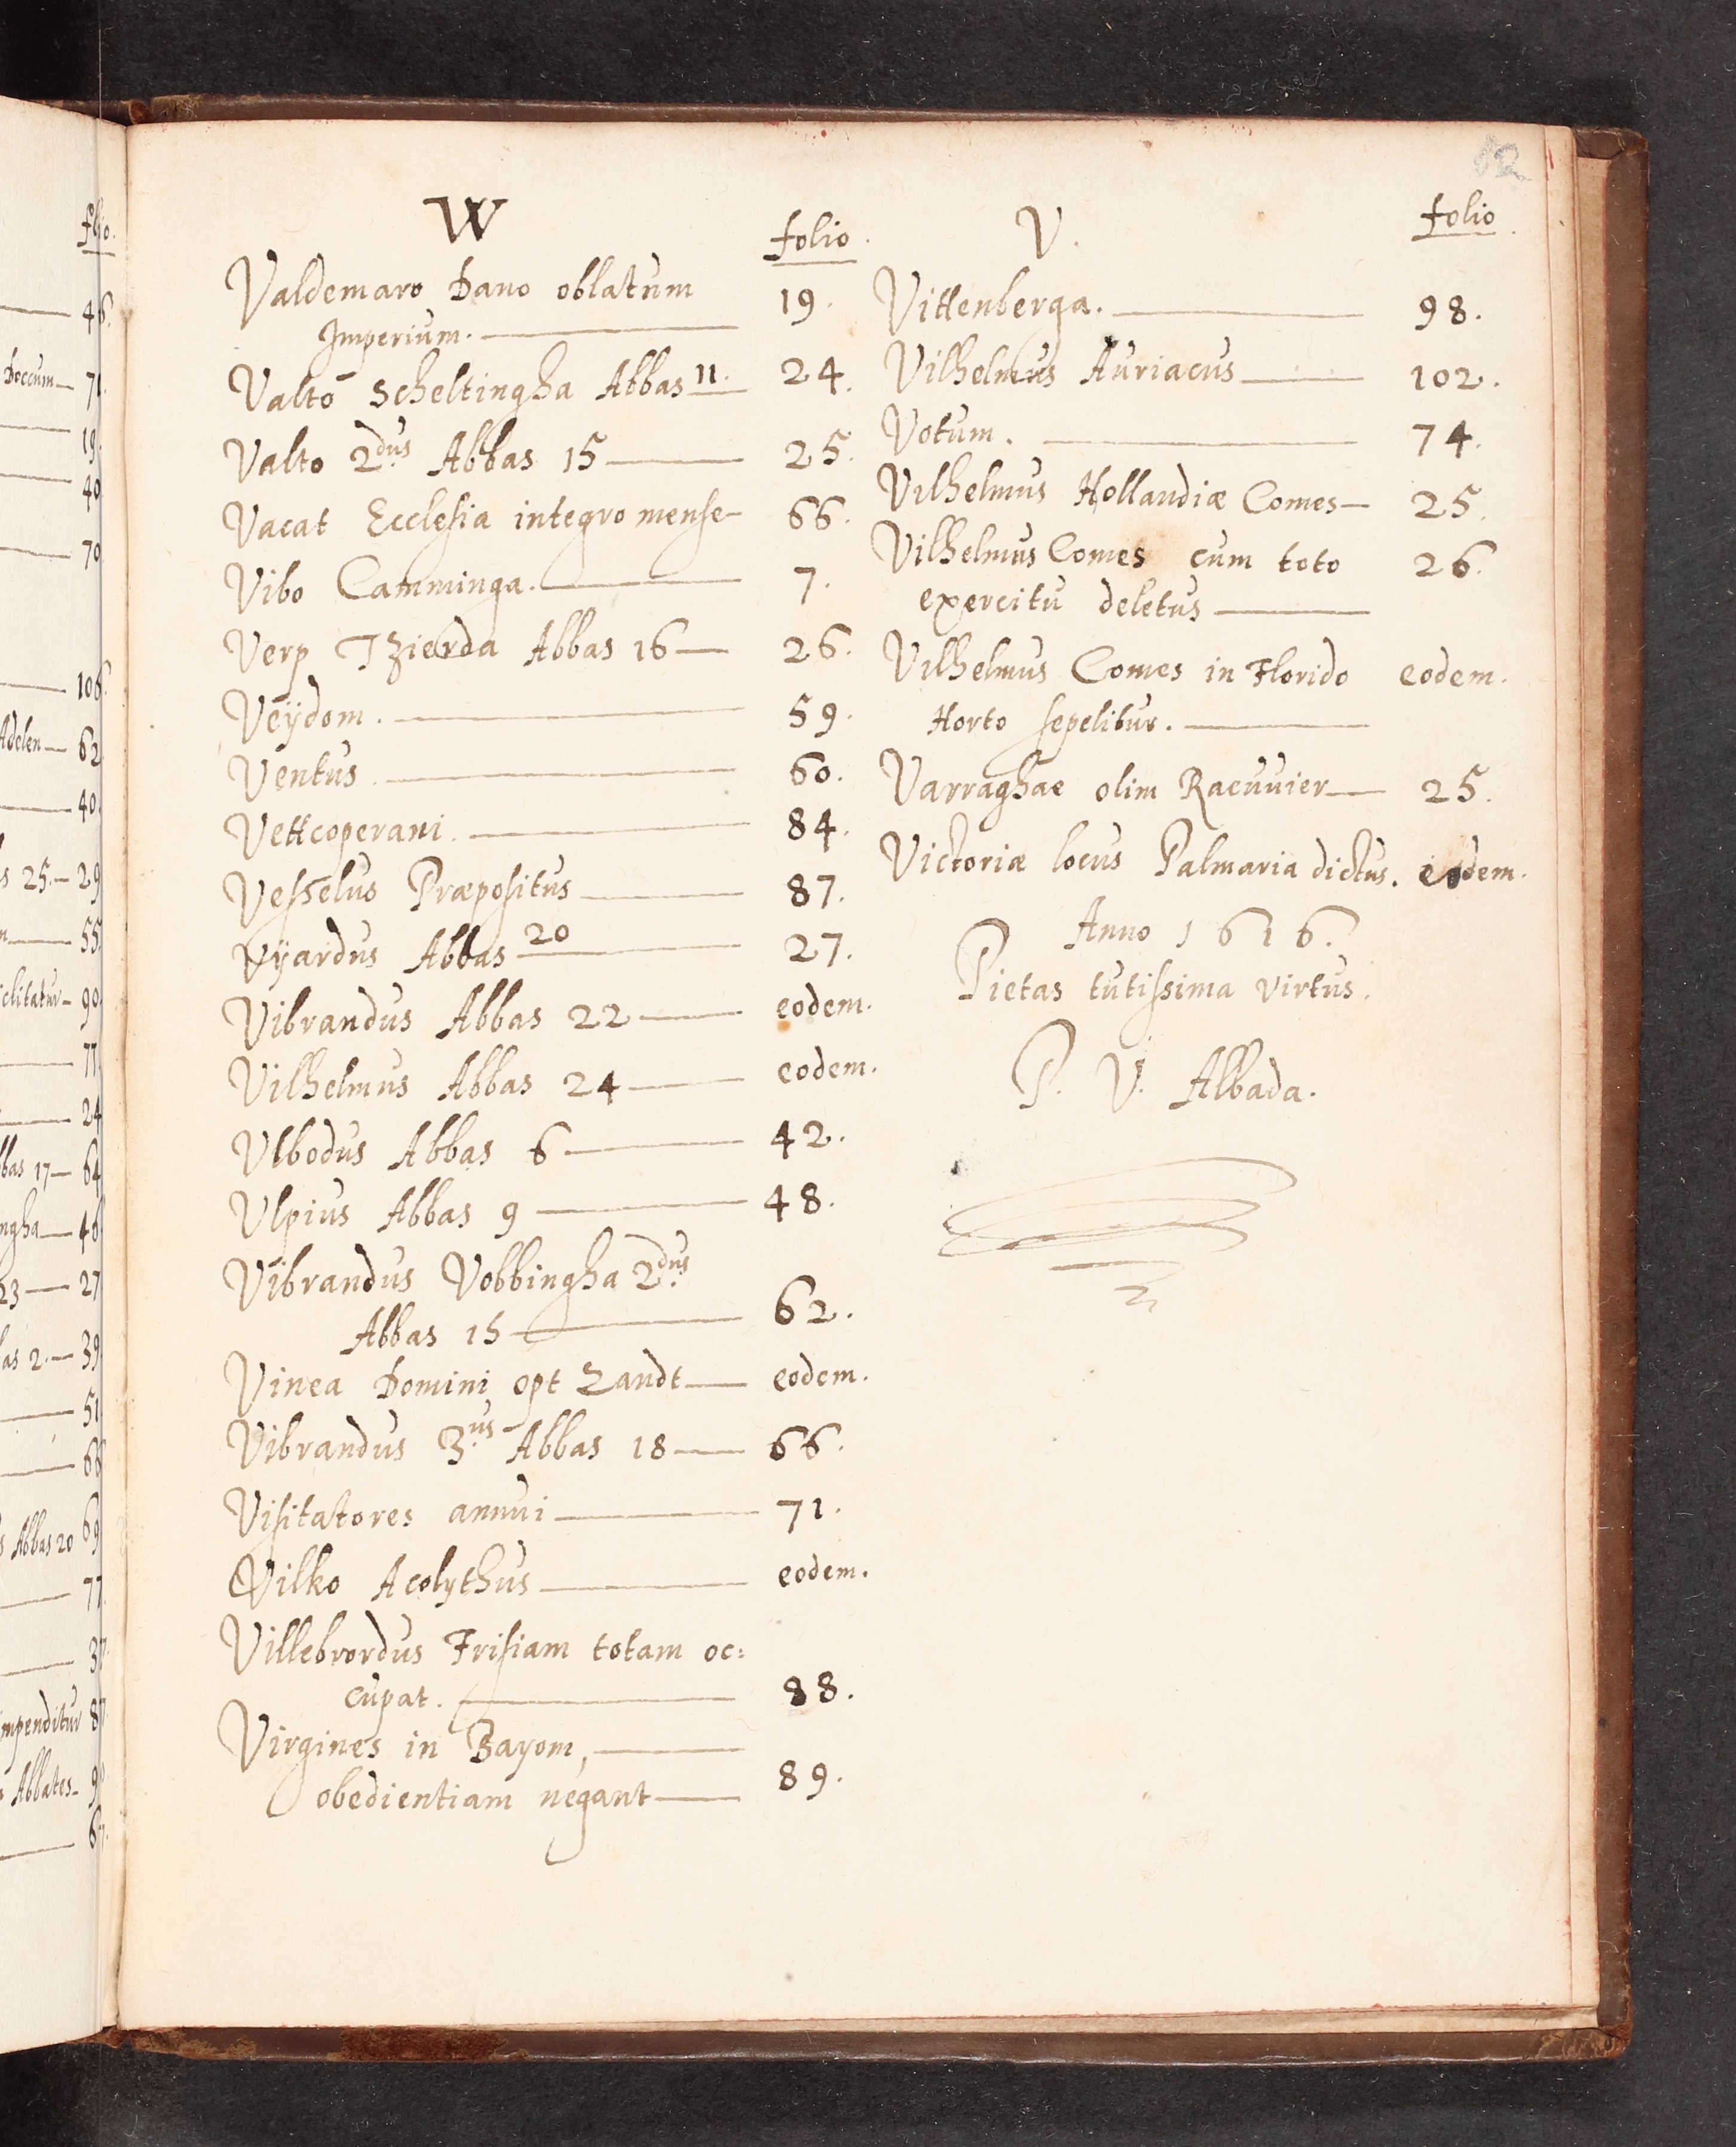 W folio.
Valdemaro Dano oblatum
Imperium. 19.
Valto Scheltingha Abbas 11. 24.
Valto 2dus Abbas 15 25.
Vacat Ecclesia integro mense 66.
Vibo Camminga. 7.
Verp Tzierda Abbas 16 26.
Veÿdom. 59.
Ventus 60.
Vettcoperani. 84.
Vesselus Præpositus 87.
Vyardus Abbas 20 27.
Vibrandus Abbas 22 eodem.
Vilhelmus Abbas 24 eodem.
Vlbodus Abbas 6 42.
Vlpius Abbas 9 48.
Vibrandus Vobbingha 2dus
Abbas 15 62.
Vinea Domini opt Zandt eodem.
Vibrandus 3us Abbas 18 66.
Visitatores annui 71.
Vilko Acolythus eodem.
Villebrordus Frisiam totam oc:
cupat. 88.
Virgines in Bayom,
obedientiam negant 89.
V. folio
Vittenberga. 98.
Vilhelmus Auriacus 102.
Votum. 74.
Vilhelmus Hollandiæ Comes 25.
Vilhelmus Comes cum toto 26.
exercitu deletus
Vilhelmus Comes in Florido eodem.
Horto sepelitur.
Varraghae olim Racuuier 25.
Victoriæ locus Palmaria dictus. eodem.
Anno 1616.
Pietas tutissima virtus.
P. V. Albada.